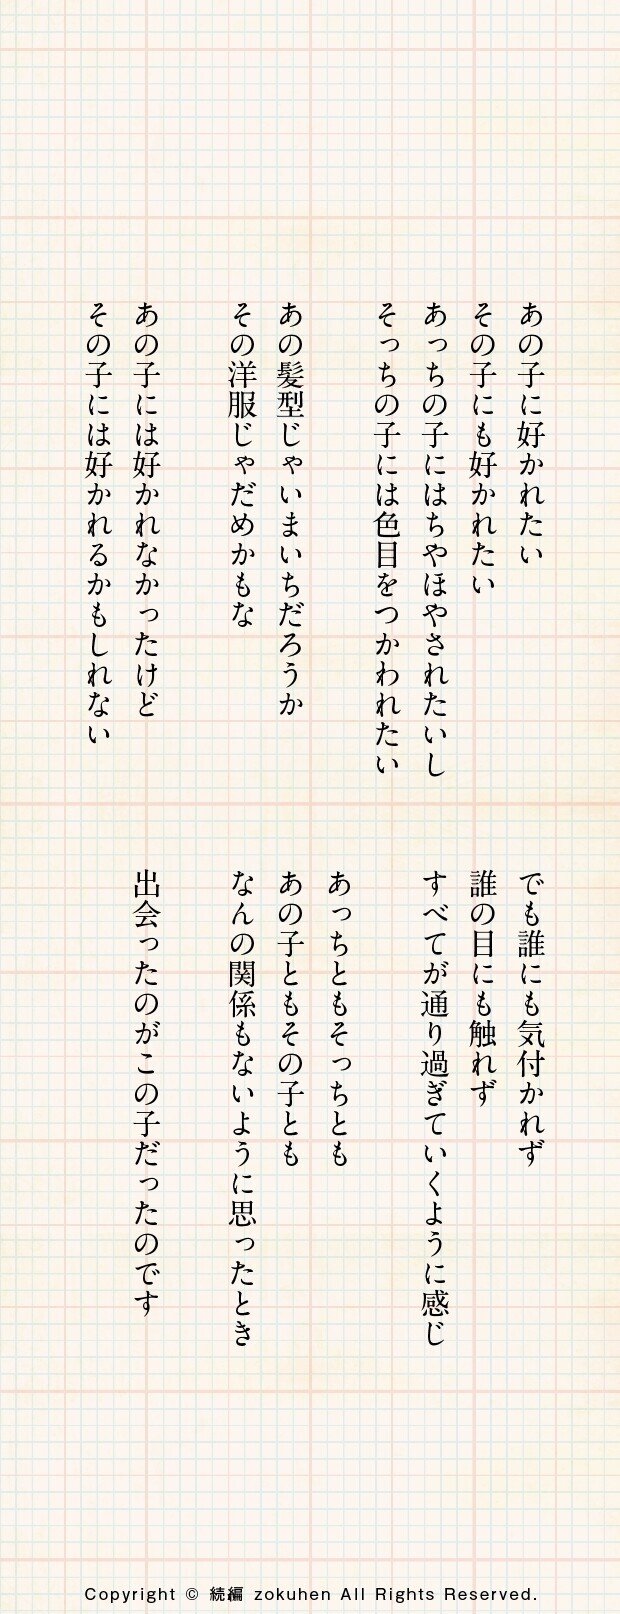 あの子に好かれたい
その子にも好かれたい
あっちの子にはちやほやされたいし
そっちの子には色目をつかわれたい
あの髪型じゃいまいちだろうか
その洋服じゃだめかもな
あの子には好かれなかったけど
その子には好かれるかもしれない
でも誰にも気付かれず
誰の目にも触れず
すべてが通り過ぎていくように感じ
あっちともそっちとも
あの子ともその子とも
なんの関係もないように思ったとき
出会ったのがこの子だったのです
Copyright © 続編 zokuhen All Rights Reserved.